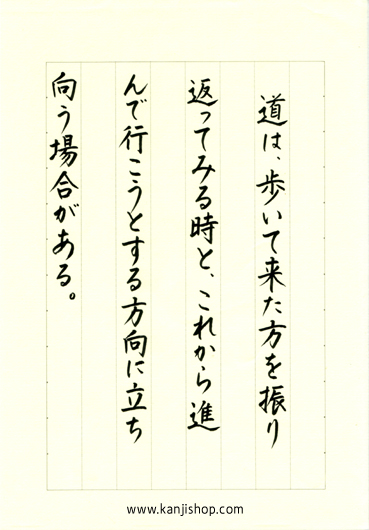 道は、歩いて来た方を振り
返ってみる時と、これから進
んで行こうとする方向に立ち
向う場合がある。
www.kanjishop.com